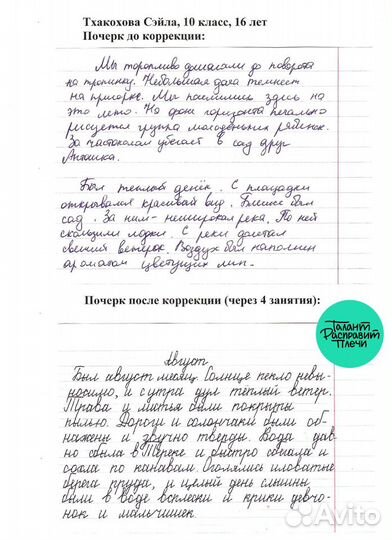 Тхакохова Сэйла, 10 класс, 16 лет
Почерк до коррекции:
Мы торопливо дошагали до поворота
на тропинку. Небольшая дача темнеет
на пригорке. Мы поселились здесь на
это лето. На фоне горизонта печально
рисуется группа молоденьких рябинок.
За частоколом убегает в сад друг
Антошка.
Был теплый денёк. С площадки
открывался красивый вид. Ближе был
сад. За ним - неширокая река. По ней
скользили лодки. С реки долетал
свежий ветерок. Воздух был наполнен
ароматом цветущих лип.
Почерк после коррекции (через 4 занятия):
Талант
Расправит
Плечи
Август
Был август месяц. Солнце пекло невы-
носимо, и с утра дул тёплый ветер.
Трава и листья были покрыты
пылью. Дороги и солончаки были об-
нажены и звучно тверды. Вода дав-
но сбыла в Тереке и быстро сбегала и
сохла по канавам. Оголялись иловатые
берега пруда, и целый день слышны
были в воде всплески и крики девчо-
нок и мальчишек.
Avito